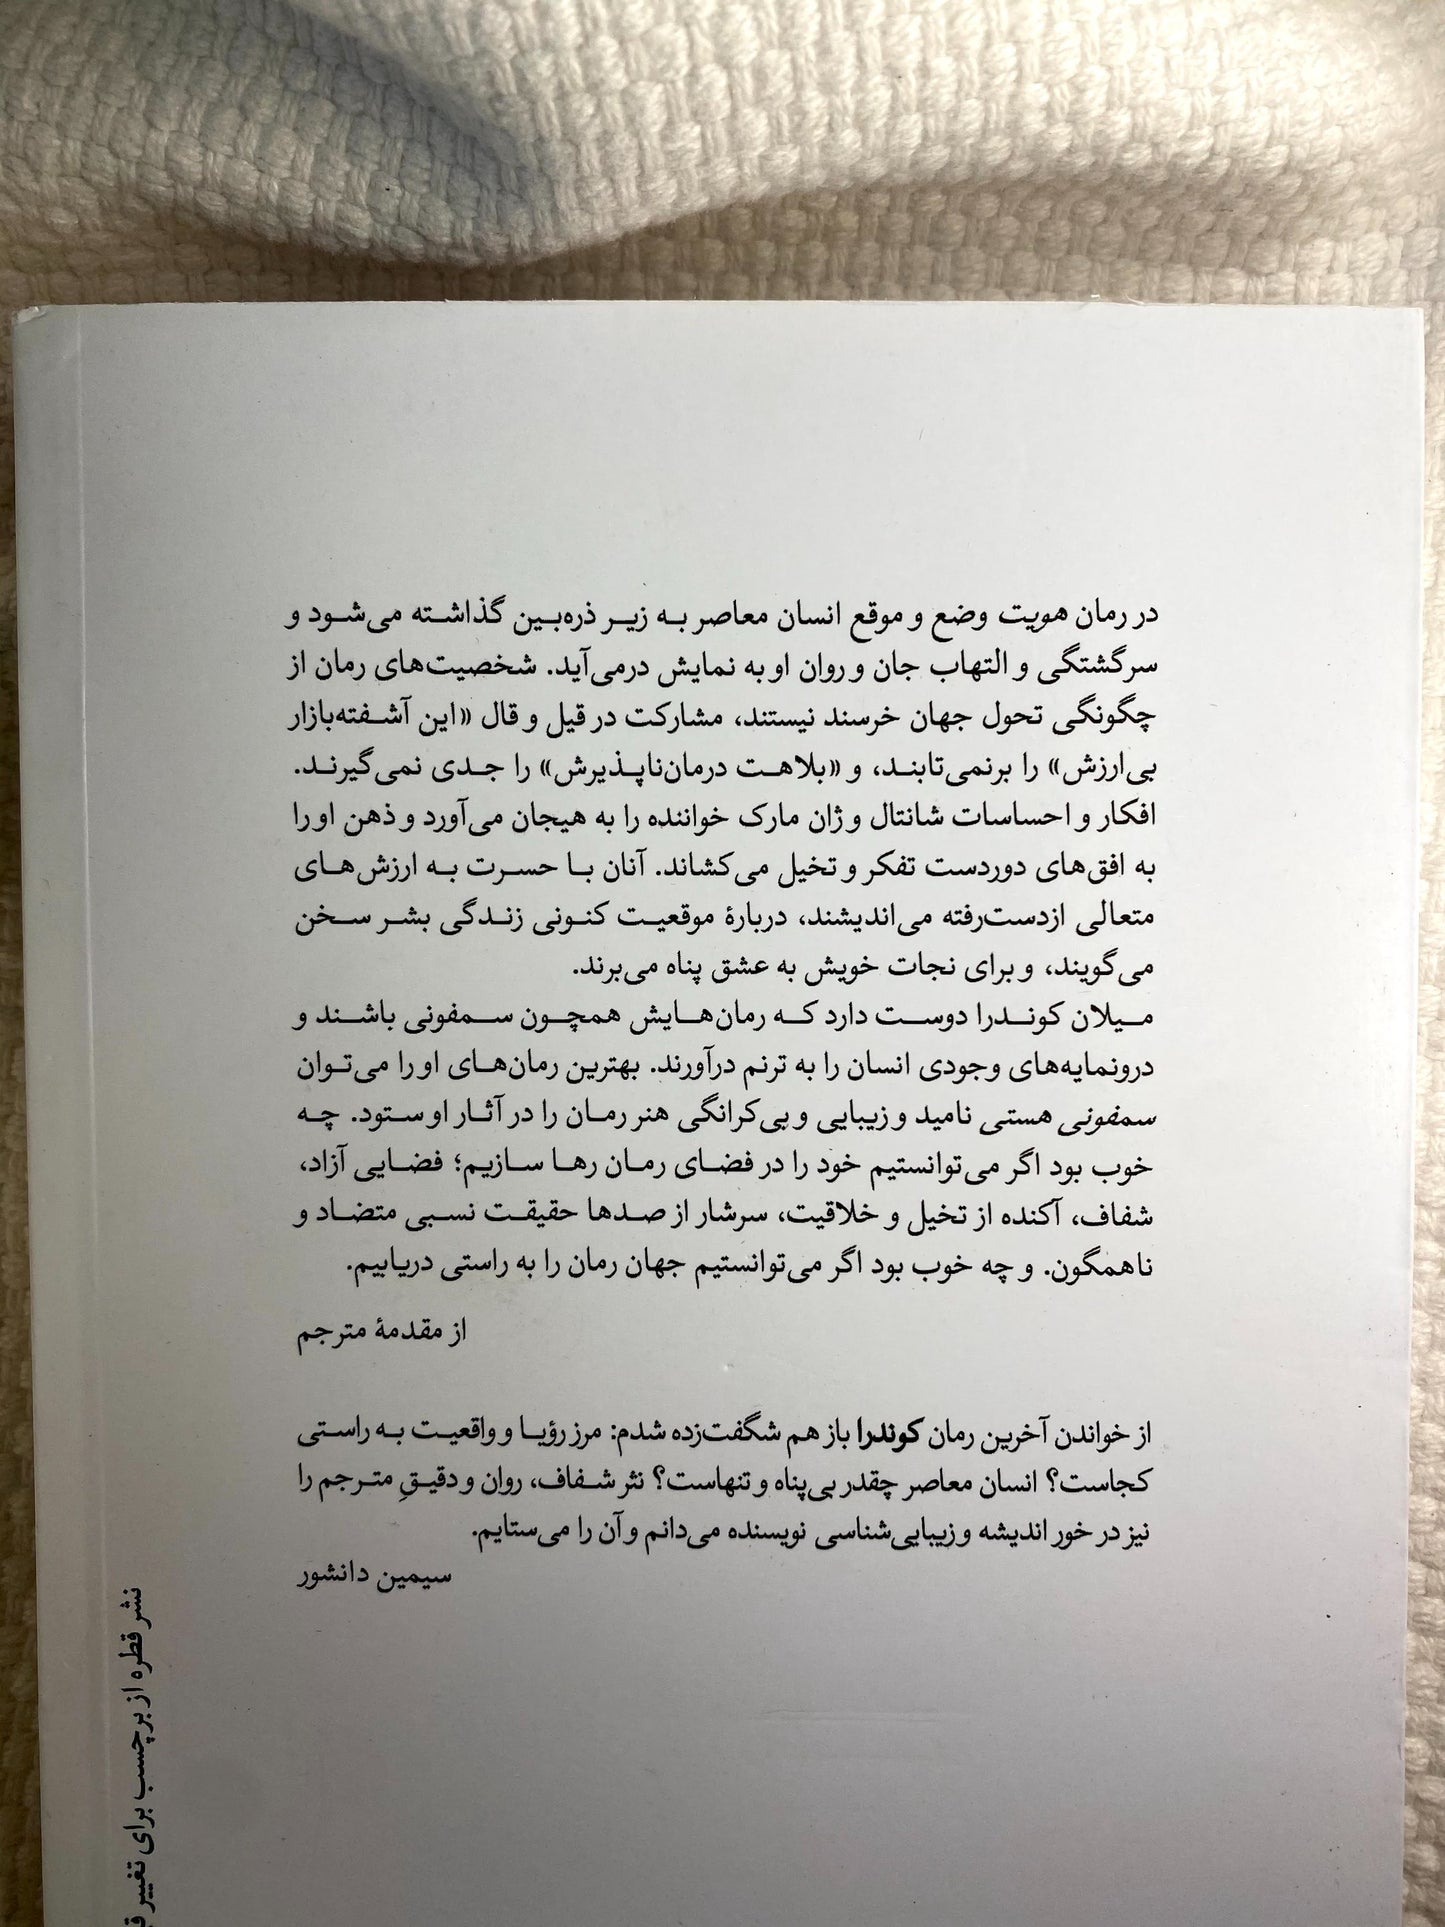 در رمان هویت وضع و موقع انسان معاصر به زیر ذره‌بین گذاشته می‌شود و
سرگشتگی و التهاب جان و روان او به نمایش درمی‌آید. شخصیت‌های رمان از
چگونگی تحول جهان خرسند نیستند، مشارکت در قیل و قال «این آشفته‌بازار
بی‌ارزش» را برنمی‌تابند، و «بلاهت درمان‌ناپذیرش» را جدی نمی‌گیرند.
افکار و احساسات شانتال و ژان مارک خواننده را به هیجان می‌آورد و ذهن او را
به افق‌های دوردست تفکر و تخیل می‌کشاند. آنان با حسرت به ارزش‌های
متعالی ازدست‌رفته می‌اندیشند، دربارهٔ موقعیت کنونی زندگی بشر سخن
می‌گویند، و برای نجات خویش به عشق پناه می‌برند.
میلان کوندرا دوست دارد که رمان‌هایش همچون سمفونی باشند و
درونمایه‌های وجودی انسان را به ترنم درآورند. بهترین رمان‌های او را می‌توان
سمفونی هستی نامید و زیبایی و بی‌کرانگی هنر رمان را در آثار او ستود. چه
خوب بود اگر می‌توانستیم خود را در فضای رمان رها سازیم؛ فضایی آزاد،
شفاف، آکنده از تخیل و خلاقیت، سرشار از صدها حقیقت نسبی متضاد و
ناهمگون. و چه خوب بود اگر می‌توانستیم جهان رمان را به راستی دریابیم.
از مقدمهٔ مترجم
از خواندن آخرین رمان کوندرا باز هم شگفت‌زده شدم: مرز رؤیا و واقعیت به راستی
کجاست؟ انسان معاصر چقدر بی‌پناه و تنهاست؟ نثر شفاف، روان و دقیقِ مترجم را
نیز در خور اندیشه و زیبایی‌شناسی نویسنده می‌دانم و آن را می‌ستایم.
سیمین دانشور
نشر قطره از برچسب برای تغییر